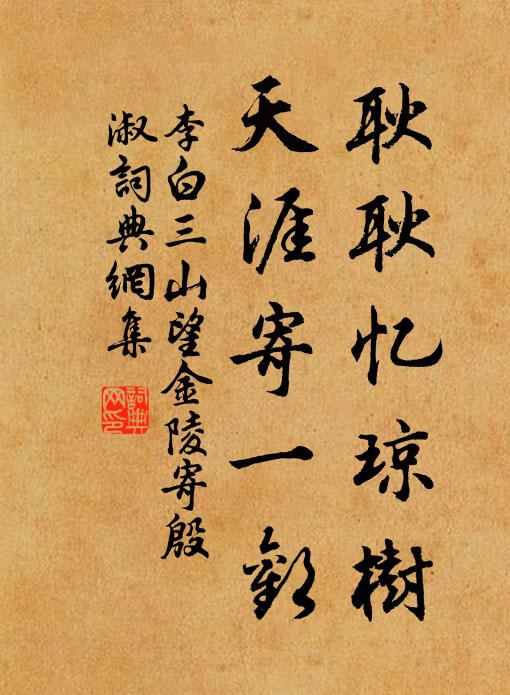 耿耿忆琼樹
天涯寄一歡
李白三山望金陵寄殷
淑詞典網集
詞典網印